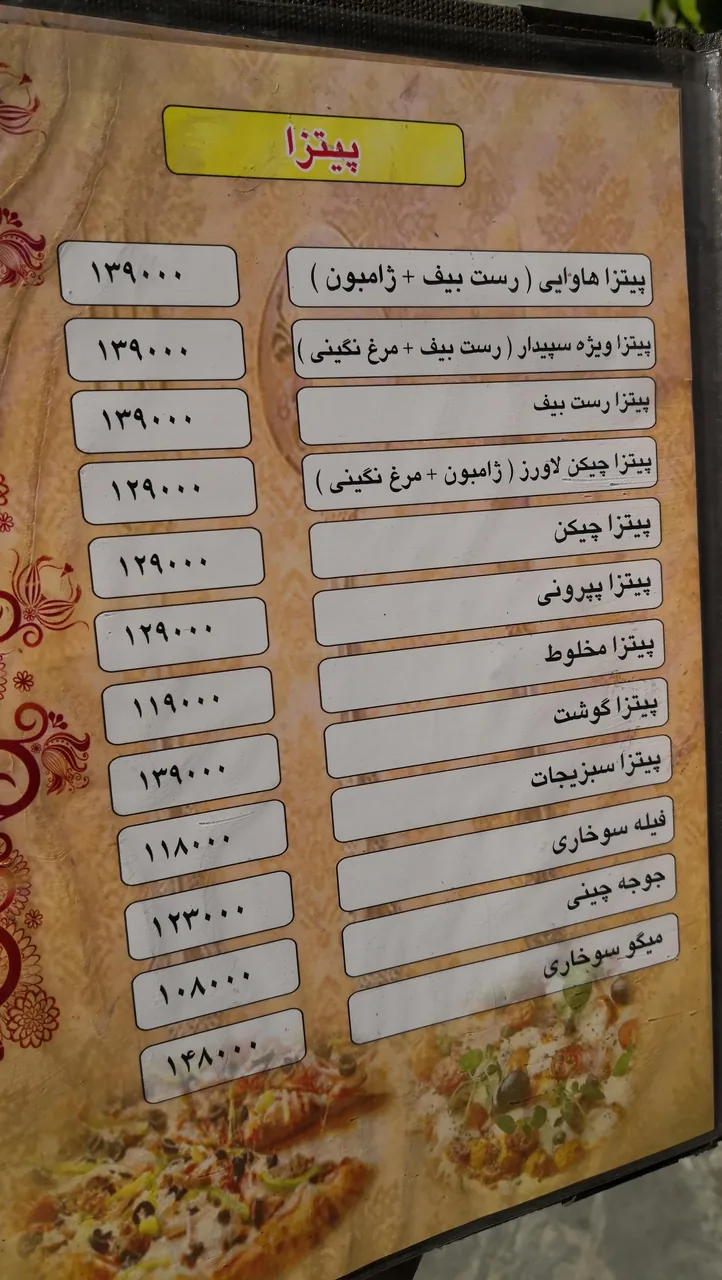 پیتزا
پیتزا هاوایی ( رست بیف + ژامبون ) ۱۳۹۰۰۰
پیتزا ویژه سپیدار ( رست بیف + مرغ نگینی ) ۱۳۹۰۰۰
پیتزا رست بیف ۱۳۹۰۰۰
پیتزا چیکن لاورز ( ژامبون + مرغ نگینی ) ۱۲۹۰۰۰
پیتزا چیکن ۱۲۹۰۰۰
پیتزا پپرونی ۱۲۹۰۰۰
پیتزا مخلوط ۱۱۹۰۰۰
پیتزا گوشت ۱۳۹۰۰۰
پیتزا سبزیجات ۱۱۸۰۰۰
فیله سوخاری ۱۲۳۰۰۰
جوجه چینی ۱۰۸۰۰۰
میگو سوخاری ۱۴۸۰۰۰